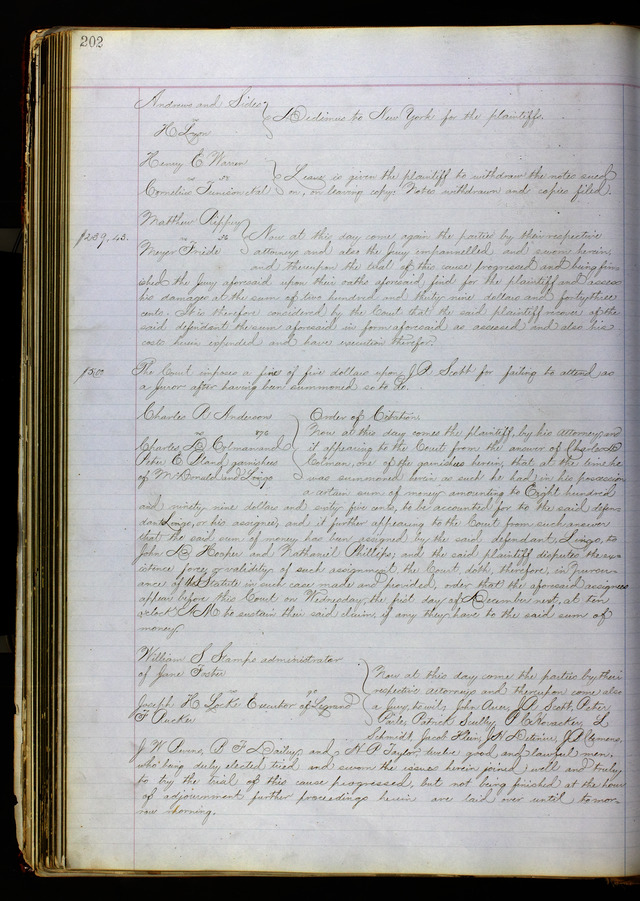 202
Andrews and Sides
vs
H Lyon
Dedimus to New York for the plaintiff.
Henry E Warren
vs
Cornelius Tunison et al
Leave is given the plaintiff to withdraw the notes sued
on, on leaving copy. Notes withdrawn and copies filed.
$239.43.
Matthew
vs
Meyer Friede
Now at this day come again the parties by their respective
attorneys and also the Jury impannelled and sworn herein,
and thereupon the trial of this cause progressed and being fin
ished the Jury aforesaid upon their oaths aforesaid, find for the plaintiff and assess
his damages at the sum of two hundred and thirty nine dollars and forty three
cents. It is therefore considered by the Court that the said plaintiff recover of the
said defendant the sum aforesaid in form aforesaid as assessed and also his
costs herein expended and have execution therefor.
The Court imposes a fine of five dollars upon J. P. Scott for failing to attend as
a Juror after having been summoned so to do.
Charles R Anderson
vs 176
Charles D Colman and
Peter E Bland garnishees
of McDonald and Lingo
Order of Citation
Now at this day comes the plaintiff, by his attorney, and
it appearing to the Court from the answer of Charles D
Colman, one of the garnishees herein, that at the time he
was summoned herein as such he had in his possession
a certain sum of money amounting to Eight hundred
and ninety nine dollars and sixty five cents, to be accounted for to the said defen
dant Lingo, or his assignees, and it further appearing to the Court from such answer
that the said sum of money has been assigned by the said defendant, Lingo, to
John Hooper and Nathaniel Phillips; and the said plaintiff disputes the ex
istence force, or validity of such assignment, the Court doth, therefore, in pursu
ance of the Statute in such case made and provided, order that the aforesaid assignees
appear before this Court on Wednesday, the first day of December next, at ten
o'clock A.M. to sustain their said claim, if any they have to the said sum of
money.
William S. Stamps administrator
of Jane Foster
vs
Joseph H Locke Executor of Legrand
F Rucker
Now at this day come the parties by their
respective attorneys and thereupon come also
a Jury, to wit, John Auer, J. P. Scott, Peter
Patrick Scully, L
Schmidt, Jacob Hein, J. P. Clemens,
J W Burns, B F Dailey and H P Taylor, twelve good and lawful men,
who being duly elected tried and sworn the issues herein joined well and truly
to try the trial of this cause progressed, but not being finished at the hour
of adjournment further proceedings herein are laid over until tomor
row morning.